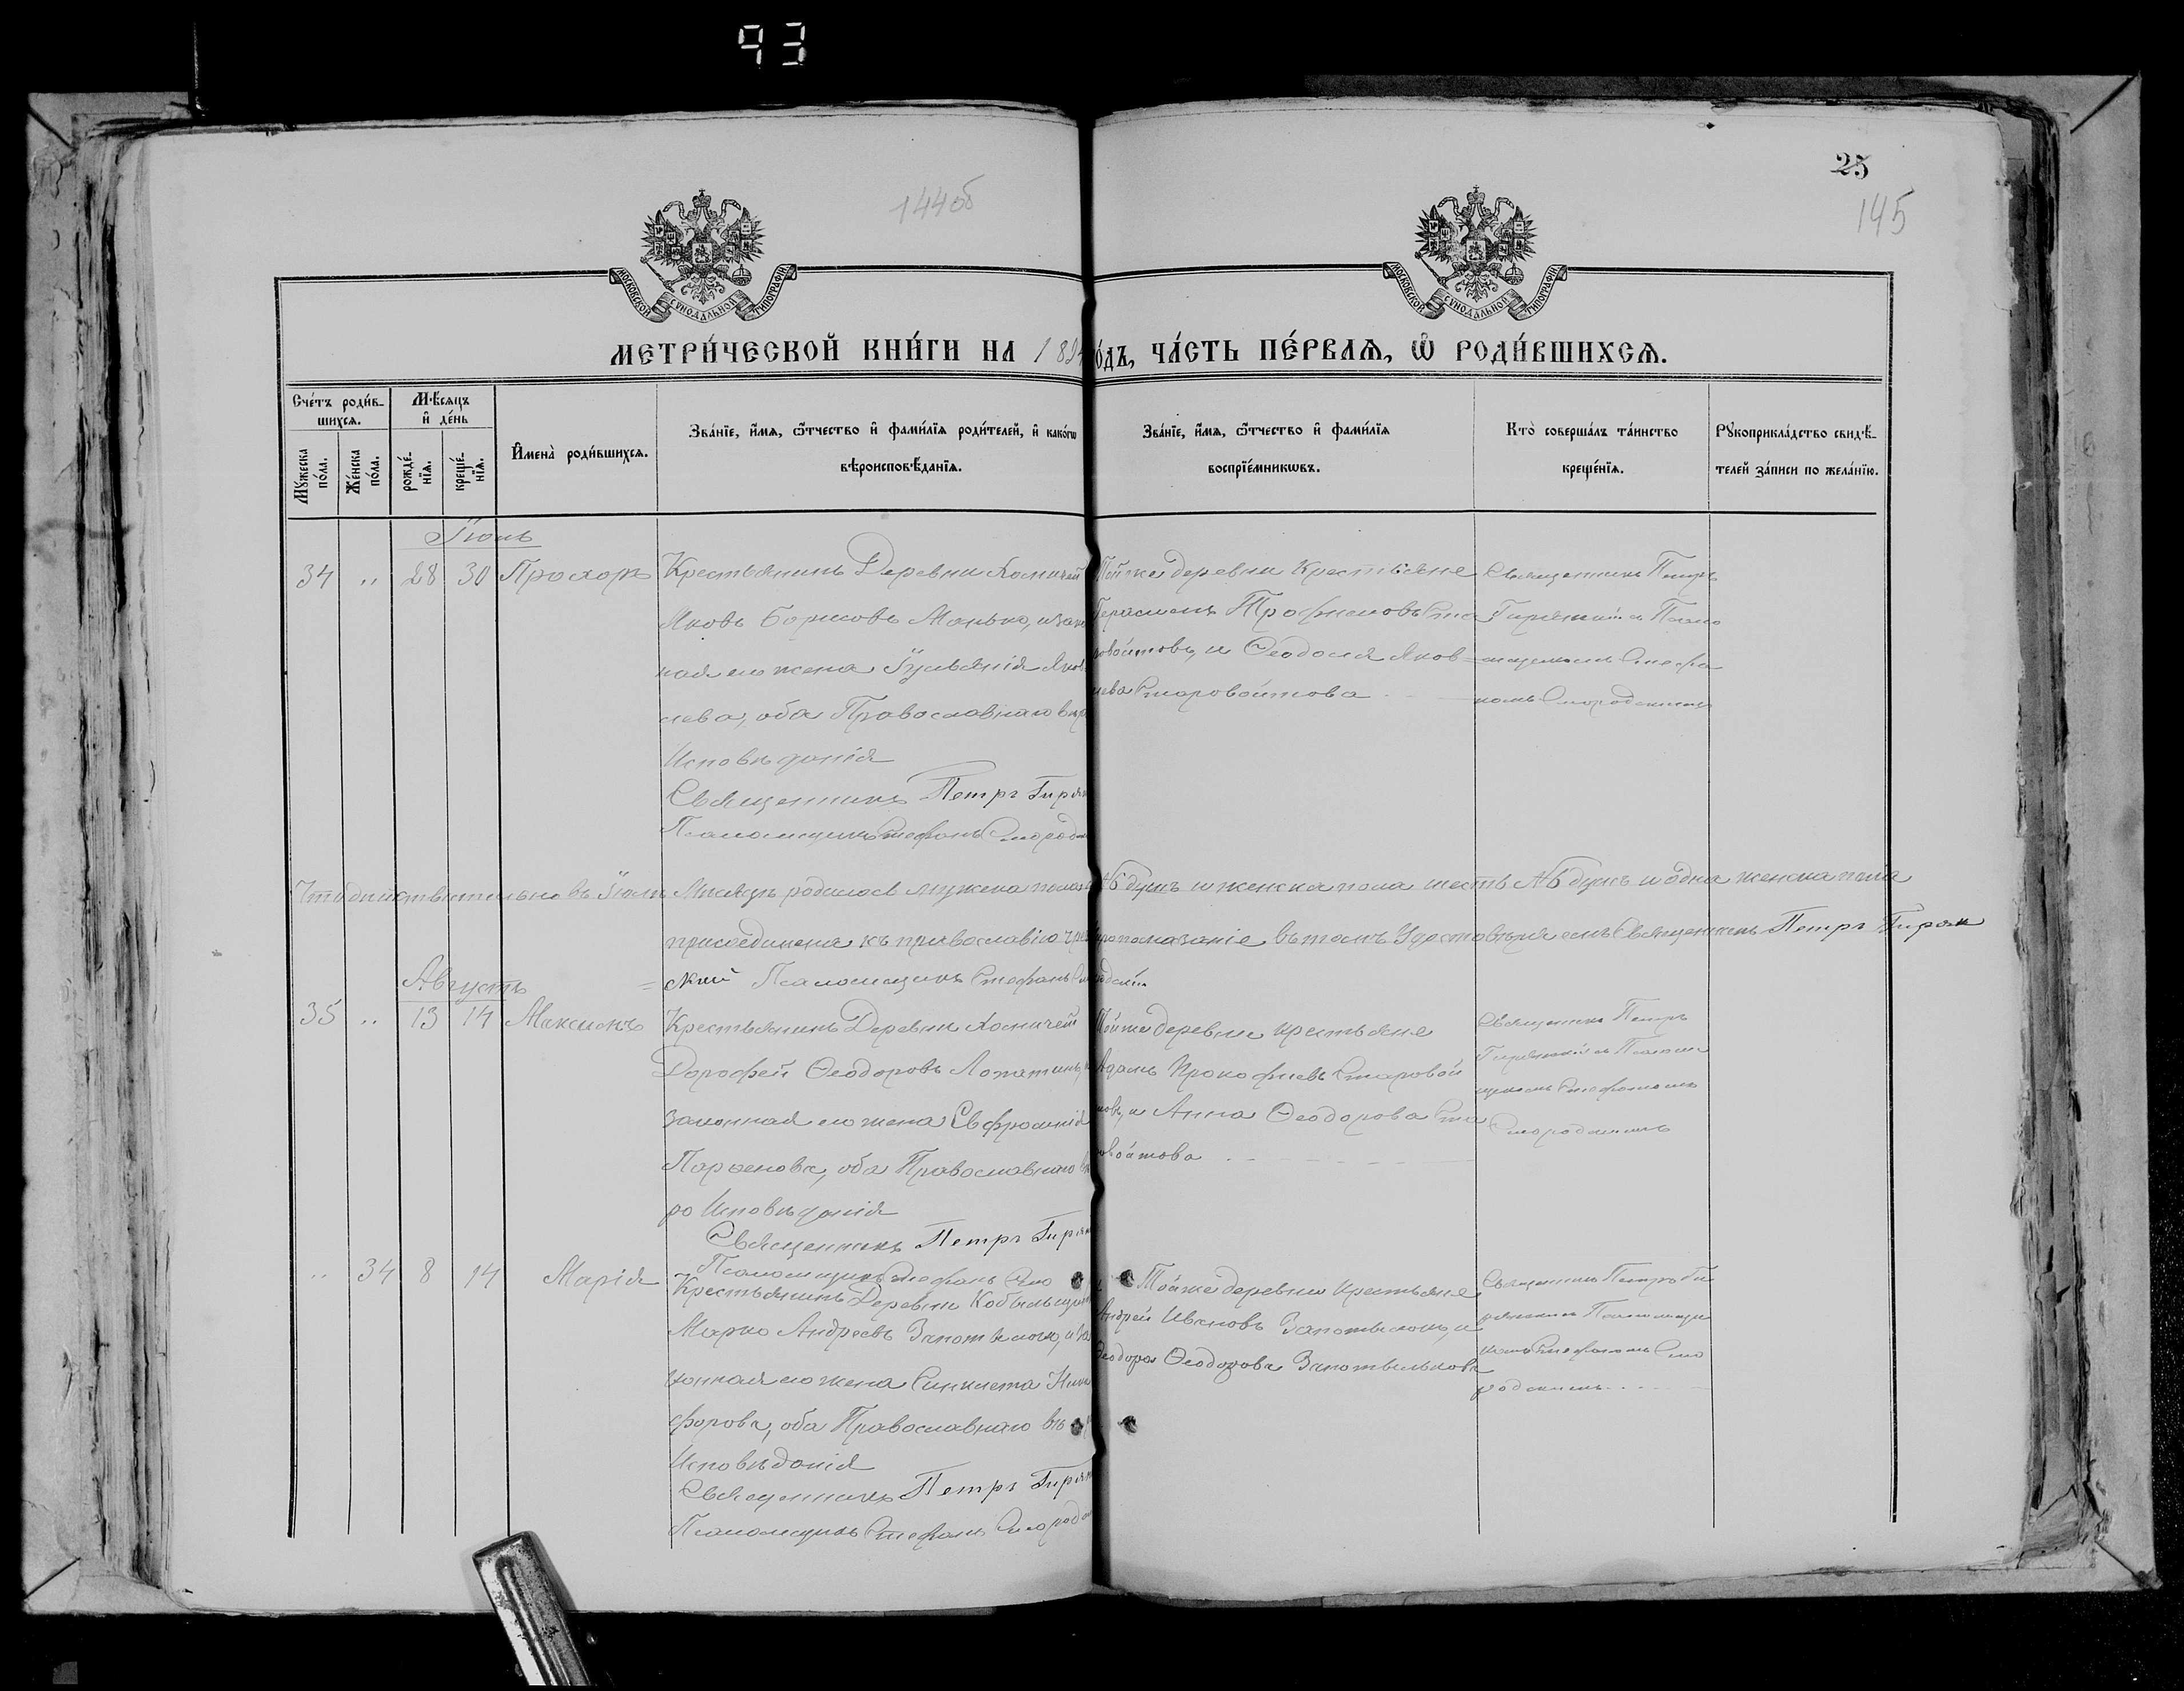 93
25
144об
145
МОСКОВСКОЙ СѴНОДАЛЬНОЙ ТИПОГРАФІИ
МОСКОВСКОЙ СѴНОДАЛЬНОЙ ТИПОГРАФІИ
МЕТРИ́ЧЕСКОЙ КНИ́ГИ НА 189
О́ДЪ, ЧА́СТЬ ПЕ́РВАѦ, Ѽ РОДИ́ВШИХСѦ.
Сче́тъ роди́в-
шихсѧ.
Мꙋ́жеска по́ла.
Же́нска по́ла.
Мѣ́сѧцъ
и҆ де́нь
рожде́-
нїѧ.
креще́-
нїѧ.
И҆мена̀ роди́вшихсѧ.
Зва́нїе, и҆́мѧ, ѻ҆́тчество и҆ фами́лїѧ роди́телей, и҆ како́гѡ
вѣроисповѣ́данїѧ.
Зва́нїе, и҆́мѧ, ѻ҆́тчество и҆ фами́лїѧ
воспрїе́мникѡвъ.
Кто̀ соверша́лъ та́инство
креще́нїѧ.
Рꙋкоприкла́дство свидѣ́-
телей за́писи по жела́нїю.
Іюль
34 „ 28 30 Прохоръ
Крестьянинъ Деревни Хомичей
Яковъ Борисовъ Монько, и зако
ная его жена Іульянія Яков
лева, оба Православнаго вѣро
Исповѣданія
Священникъ Петръ Гиряк
Псаломщикъ Стефанъ Смород
Тойже деревни Крестьяне
Герасимъ Трофимовъ Ста
ровойтовъ, и Ѳеодосія Яков=
лева Старовойтова
Священникъ Петръ
Гирякскій съ Псало
мщикомъ Стефа
номъ Смородскимъ
Что дѣйствительно въ Іюлѣ Мѣсяцѣ родилось мужеска пола № 6 душъ и женска пола шесть № 6 душъ и одна женска пола
присоединена къ православію чрезъ Мѵропомазаніе въ томъ Удостовѣряемъ Священникъ Петръ Гиряк
=скій Псаломщикъ Стефанъ Смородскій
Августъ
35 „ 13 14 Максимъ
Крестьянинъ Деревни Хомичей
Дорофей Ѳеодоровъ Лопатинъ, и
законная его жена Евфросинія
Парѳенова, оба Православнаго вѣ
ро Исповѣданія
Священникъ Петръ Гиряк
Псаломщикъ Стефанъ Смо
Тойже деревни крестьяне
Адамъ Прокофіевъ Старовой
товъ, и Анна Ѳеодорова Ста
ровойтова
Священникъ Петръ
Гирякскій съ Псалом
щикомъ Стефаномъ
Смородскимъ
„ 34 8 14 Марія
Крестьянинъ Деревни Кобыльщины
Марко Андреевъ Запотылокъ, и за
конная его жена Синклета Ники
форова, оба Православнаго вѣро
Исповѣданія
Священникъ Петръ Гиряк
Псаломщикъ Стефанъ Смород
Тойже деревни Крестьяне
Андрей Ивановъ Запотылокъ, и
Ѳеодора Ѳеодорова Запотылькова
Священникъ Петръ Ги
съ Псаломщи
комъ Стефаномъ Смо
родскимъ